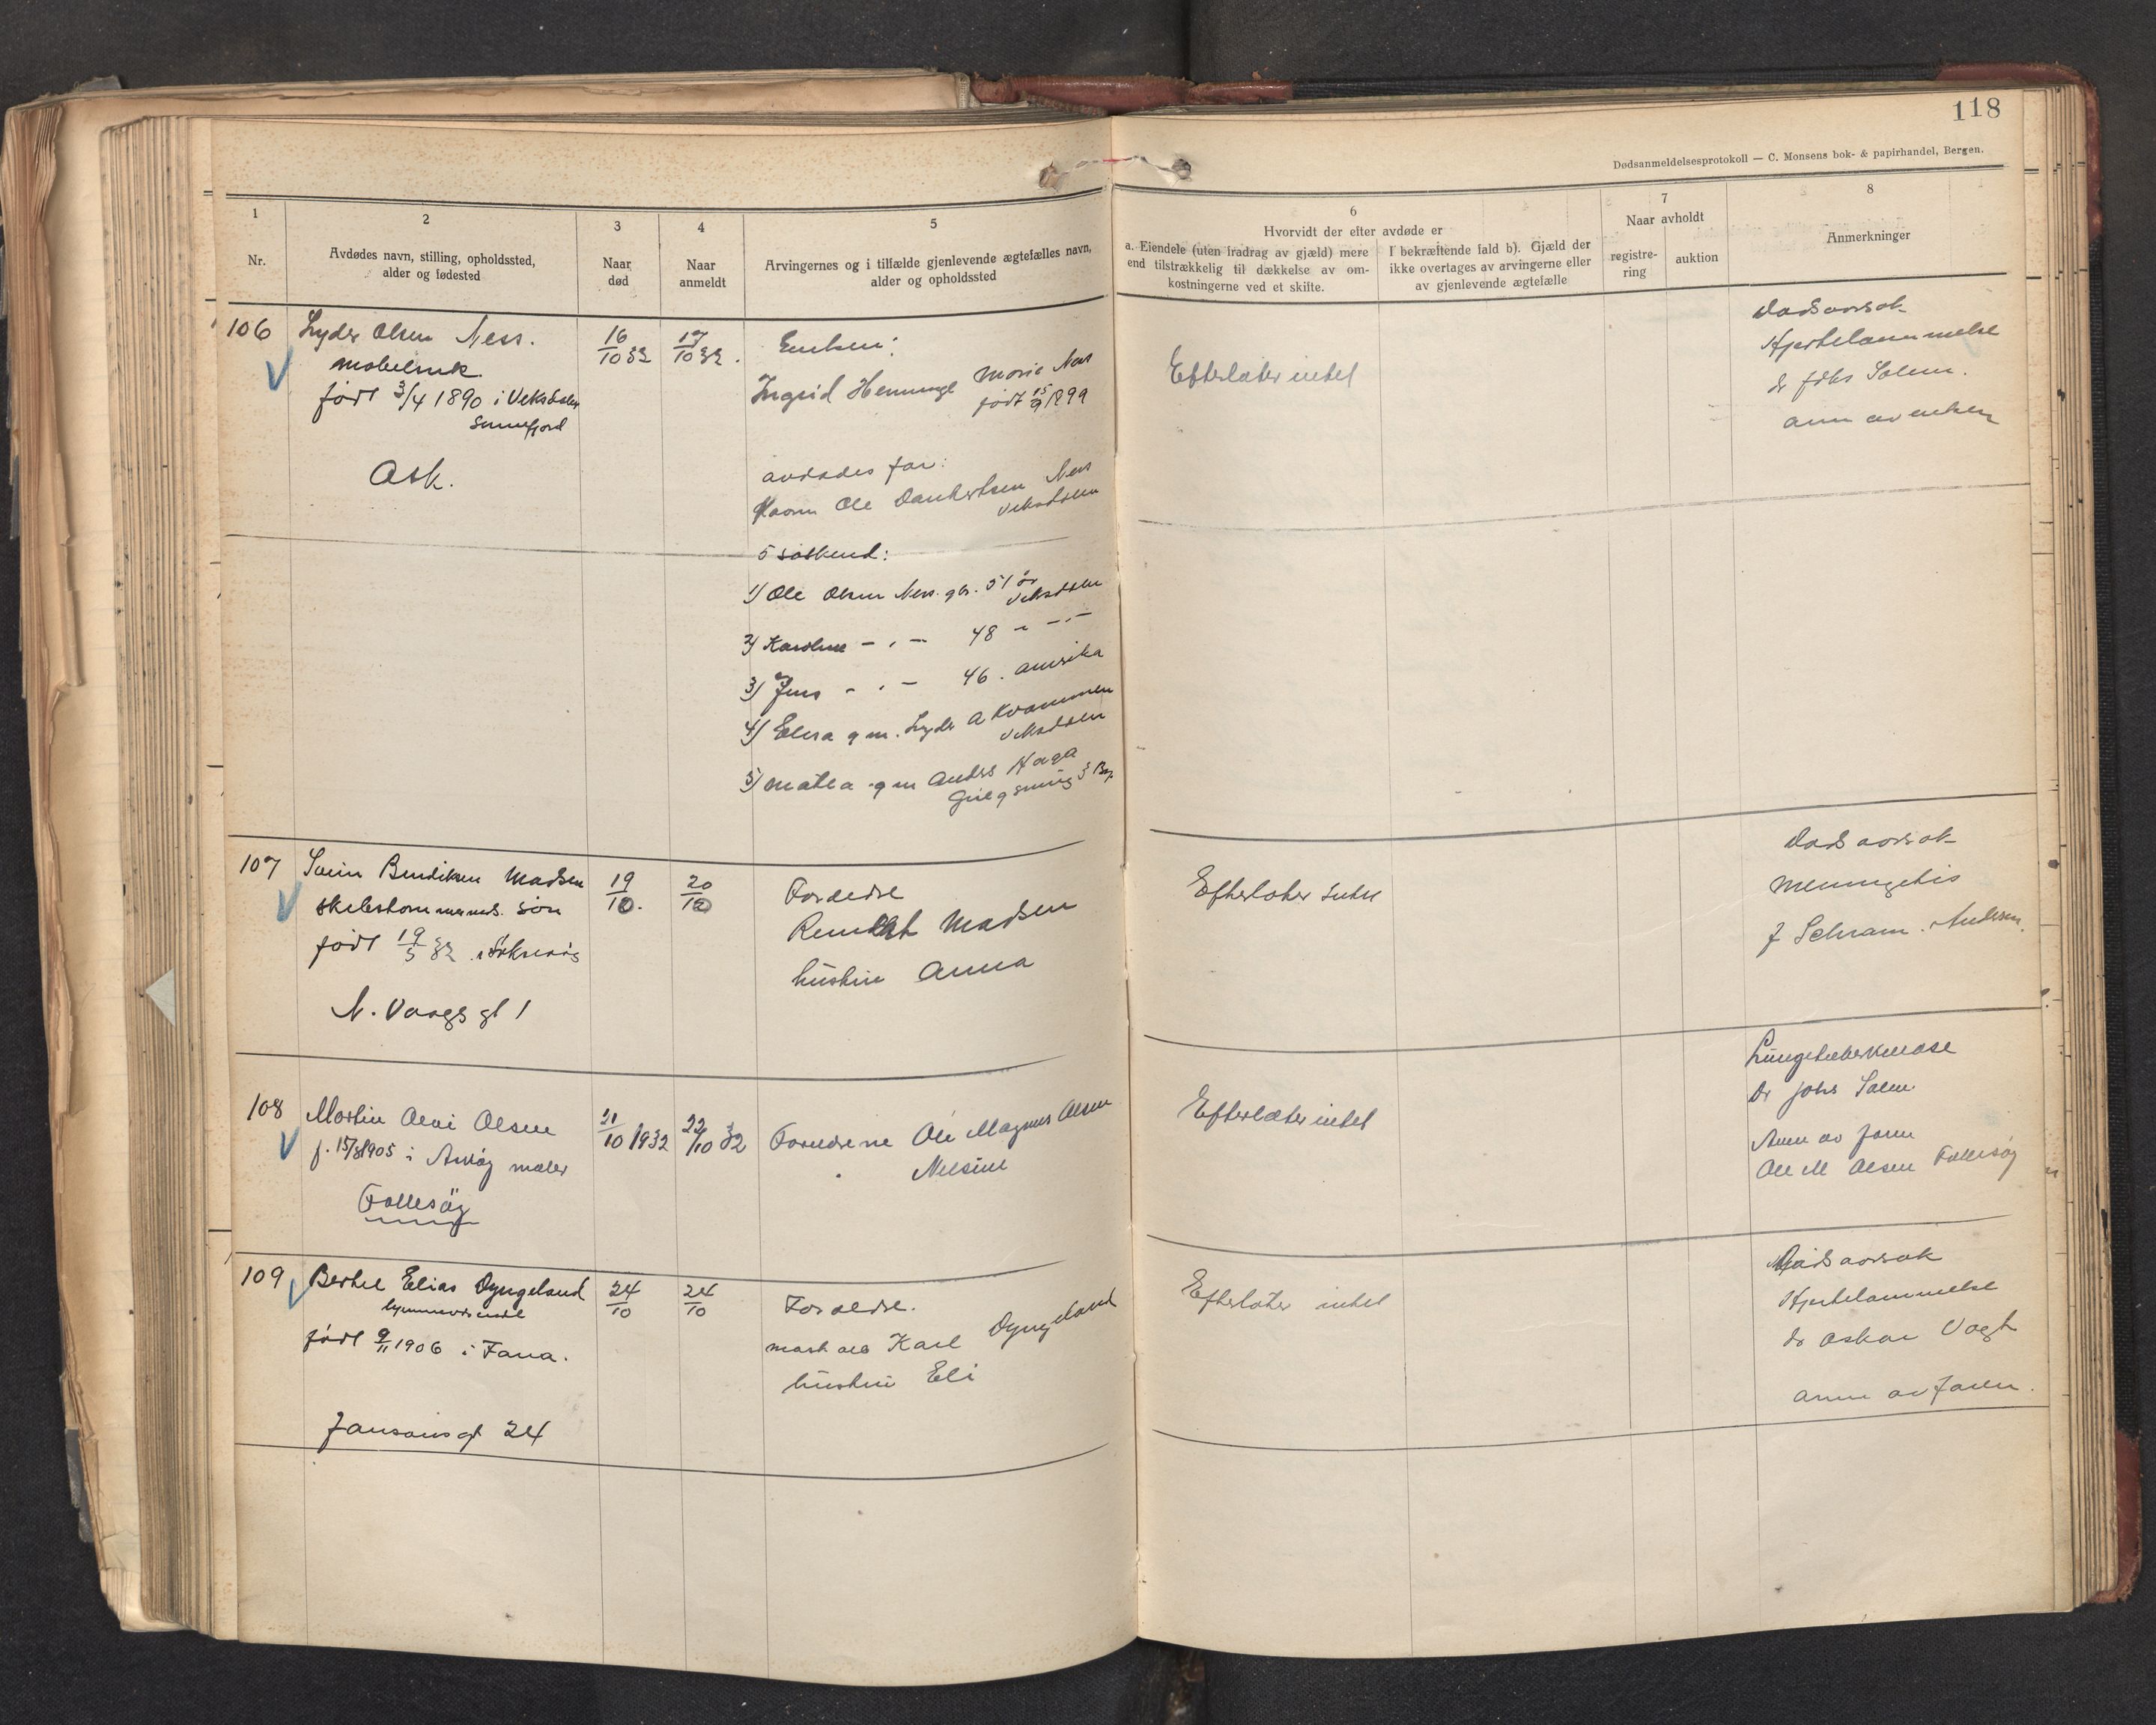 118
Dødsanmeldelsesprotokoll — C. Monsens bok- & papirhandel, Bergen.
1
Nr.
2
Avdødes navn, stilling, opholdssted,
alder og fødested
3
Naar
død
4
Naar
anmeldt
5
Arvingernes og i tilfælde gjenlevende ægtefælles navn,
alder og opholdssted
6
Hvorvidt der efter avdøde er
a. Eiendele (uten fradrag av gjæld) mere
end tilstrækkelig til dækkelse av om-
kostningerne ved et skifte.
I bekræftende fald b). Gjæld der
ikke overtages av arvingerne eller
av gjenlevende ægtefælle
7
Naar avholdt
registre-
ring
auktion
8
Anmerkninger
106
Lyder Olsen Ness.
møbelsnk.
født 3/4 1890 i Veksdalen
Sunnfjord
Ask.
16/10 32
17/10 32.
Enken:
Ingrid Marie Ness
født 15/9 1899
avdødes far:
Ole Dankertsen Ness
Veksdalen
5 søskend:
1) Ole Olsen Ness. gbr. 51 år
Veksdalen
2) Karoline - " - 48 " - " -
3) Jens - " - 46. Amerika
4) Elisa g m. Lyder A Kvammen
Veksdalen
5) Matea g m Anders Haga
Efterlater intet
Dødsaarsak
Hjertelammelse
dr Johs Solem.
anm av enken
107
Svein Bendiksen Madsen
søn
født 19/5 32
N. Vaags gt 1
19/10.
20/10
Forældre
Madsen
hustru Anna
Efterlater intet
Dødsaarsak
Meningitis
J Schram. Andersen.
108
Martin Olai Olsen
f. 15/8 1905 i Askøy maler
Follesøy
21/10 1932
22/10 32
Forældrene Ole Magnus Olsen
Nelsine
Efterlater intet
Lungetuberkulose
Dr Johs Solem
Anm av faren
Ole M Olsen Follesøy
109
Bertel Elias Dyngeland
hjemmeværende
født 9/11 1906 i Fana.
Jansons gt 24
24/10
24/10
Forældre.
Karl Dyngeland
hustru Eli
Efterlater intet
Dødsaarsak
Hjertelammelse
dr Oskar Vogt
anm av faren.